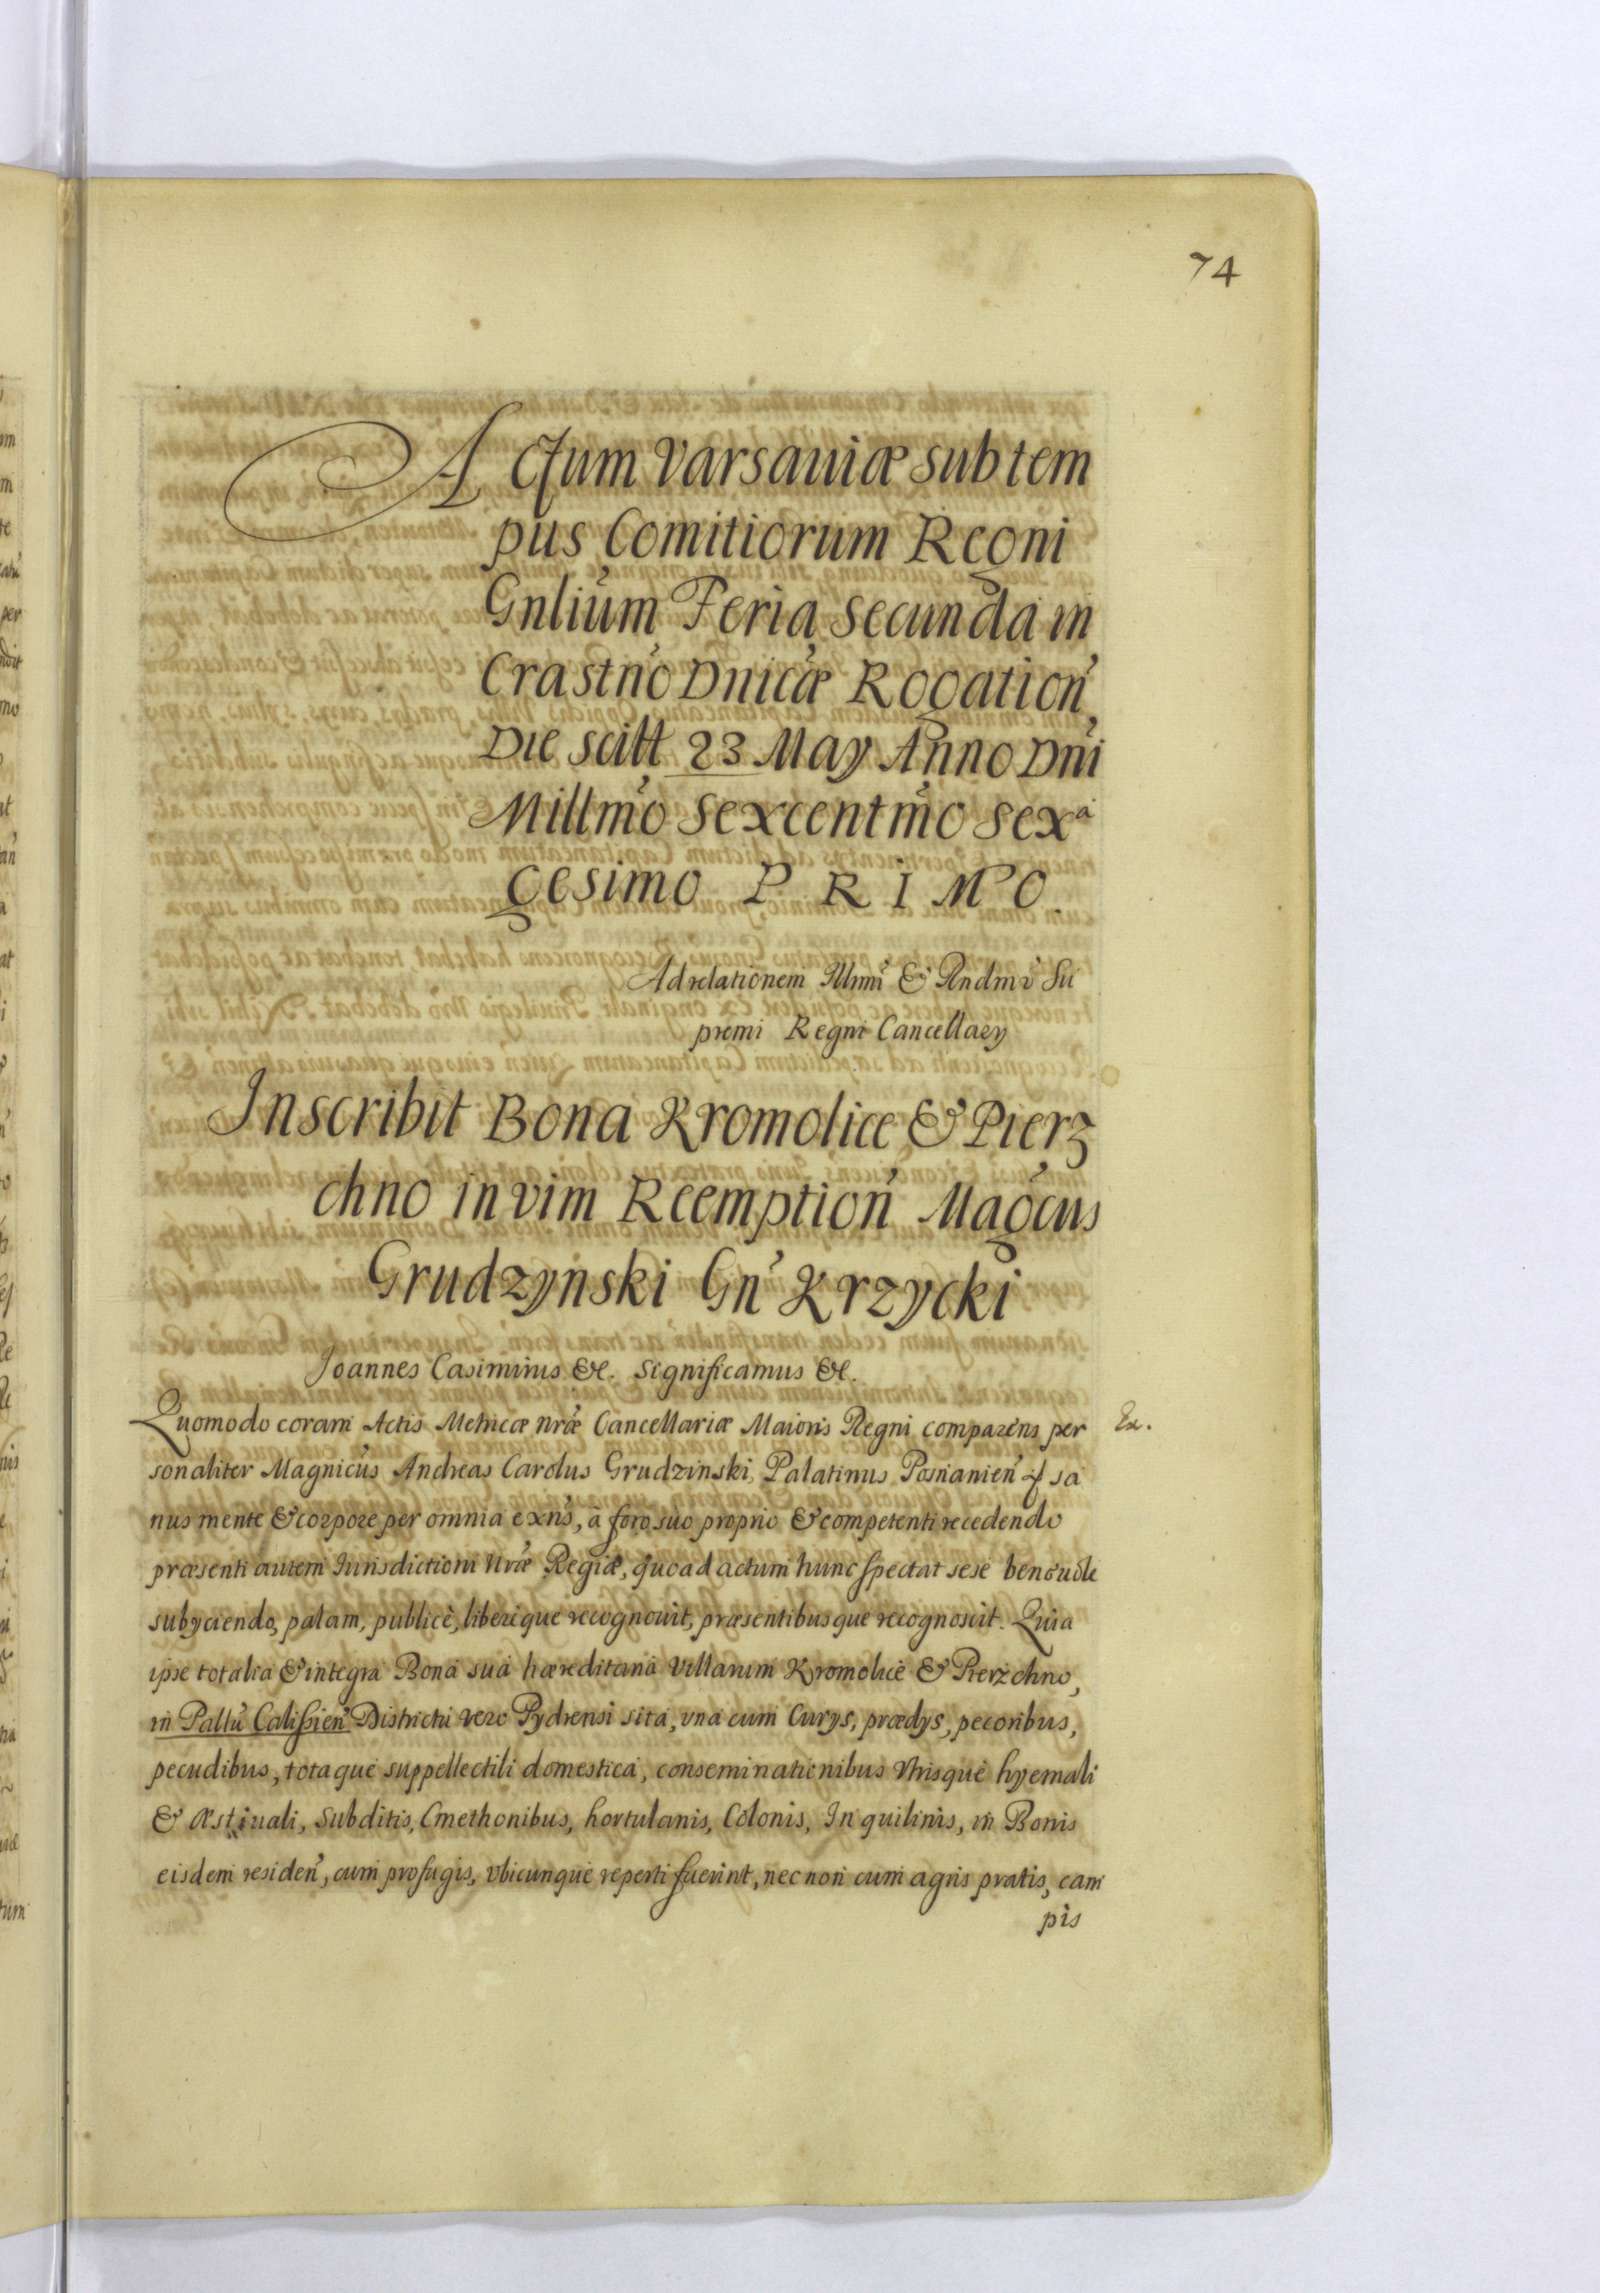 74
Actum Varsauiæ sub tem
pus Comitiorum Regni
Gnlium Feria Secunda in
Crastno Dnicæ Rogation
Die scitt 23 May Anno Dni
Millmo Sexcentmo Sexa
gesimo PRIMO.
Ad relationem Illmi & Rndmi Su
premi Regni Cancellary
Inscribit Bona Kromolice & Pierz
chno in vim Reemption Magcus
Grudzynski Gn Krzycki
Joannes Casimirus &c. Significamus &c.
Quomodo coram Actis Metricæ nræ Cancellariæ Maioris Regni comparens per
Ex.
sonaliter Magnicus Andreas Carolus Grudzinski, Palatinus Posnanien sa
nus mente & corpore per omnia exns, à foro suo proprio & competenti recedendo
præsenti autem Iurisdictioni nræ Regiæ, quoad actum hunc spectat sese beneuole
subyciendo, palam, publicè, liberéque recognouit, præsentibusque recognoscit. Quia
ipse totalia & integra Bona sua hæreditaria Villarum Kromolice & Pierzchno,
in Pallu Calissien Districtu vero Pydrensi sita, vna cum Curys, prædys, pecoribus,
pecudibus, totaque suppellectili domestica, conseminationibus vtrisque hyemali
& æstiuali, Subditis, Cmethonibus, hortulanis, Colonis, Inquilinis, in Bonis
eisdem residen, cum profugis, vbicunque reperti fuerint, nec non cum agris pratis, cam
pis